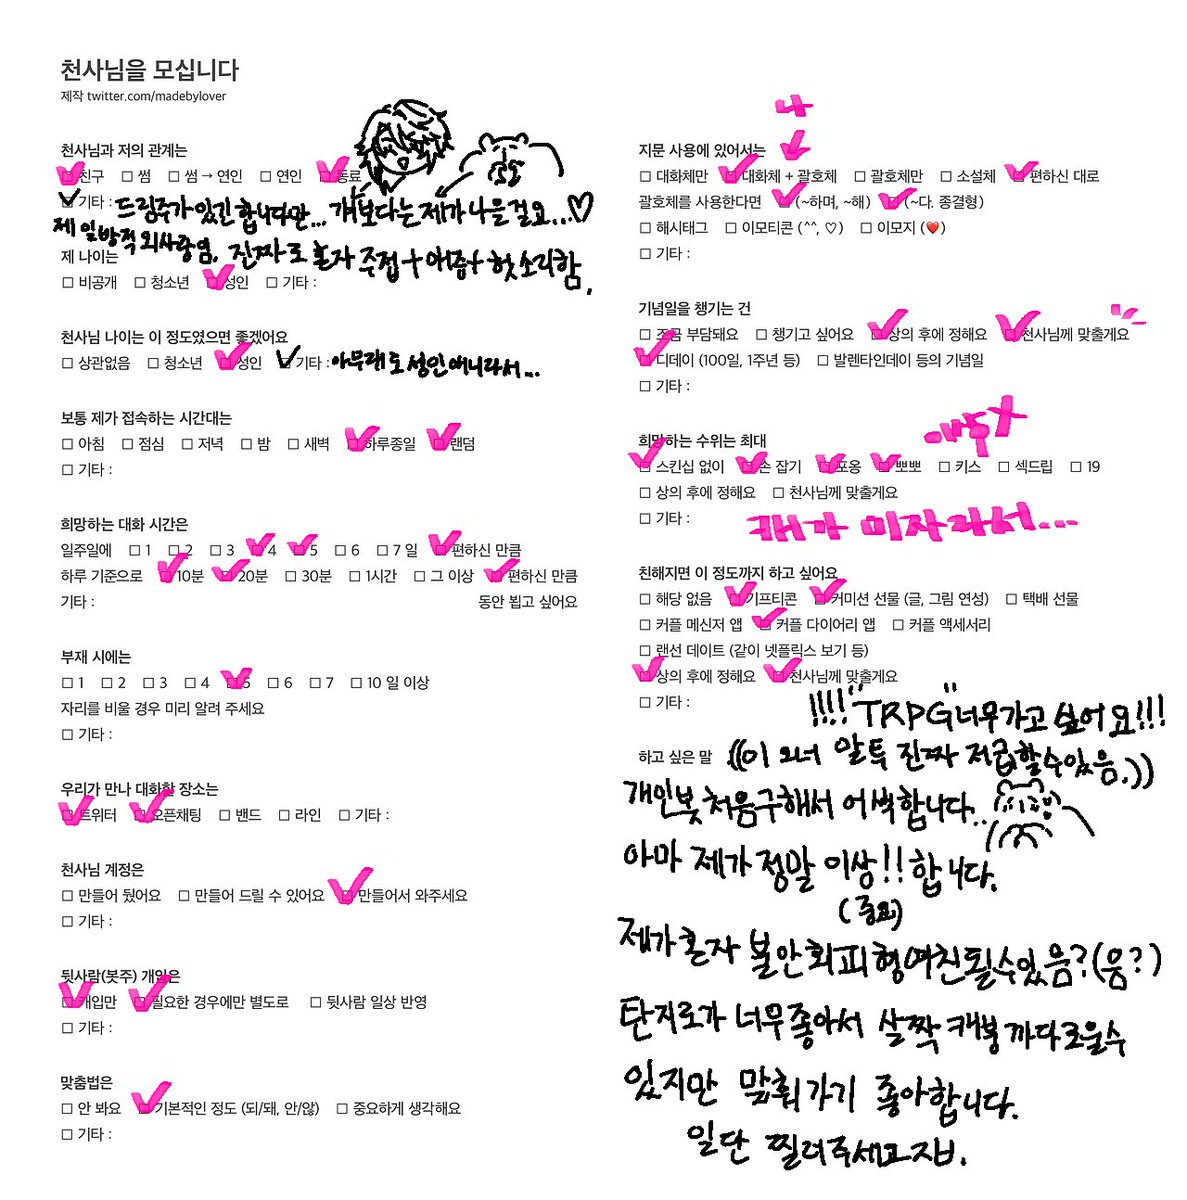 천사님을 모십니다
제작 twitter.com/madebylover
천사님과 저의 관계는
□ 친구 □ 썸 □ 썸 → 연인 □ 연인 □ 동료
□ 기타 : 드림주가 있긴 합니다만... 걔보다는 제가 나을걸요...♡
제 일방적 외사랑염, 진짜로 혼자 주접+애증+헛소리함.
제 나이는
□ 비공개 □ 청소년 □ 성인 □ 기타 :
천사님 나이는 이 정도였으면 좋겠어요
□ 상관없음 □ 청소년 □ 성인 □ 기타 : 아무래도 성인애니라서...
보통 제가 접속하는 시간대는
□ 아침 □ 점심 □ 저녁 □ 밤 □ 새벽 □ 하루종일 □ 랜덤
□ 기타 :
희망하는 대화 시간은
일주일에 □ 1 □ 2 □ 3 □ 4 □ 5 □ 6 □ 7 일 □ 편하신 만큼
하루 기준으로 □ 10분 □ 20분 □ 30분 □ 1시간 □ 그 이상 □ 편하신 만큼
기타 : 동안 뵙고 싶어요
부재 시에는
□ 1 □ 2 □ 3 □ 4 □ 5 □ 6 □ 7 □ 10 일 이상
자리를 비울 경우 미리 알려 주세요
□ 기타 :
우리가 만나 대화할 장소는
□ 트위터 □ 오픈채팅 □ 밴드 □ 라인 □ 기타 :
천사님 계정은
□ 만들어 뒀어요 □ 만들어 드릴 수 있어요 □ 만들어서 와주세요
□ 기타 :
뒷사람(봇주) 개입은
□ 개입만 □ 필요한 경우에만 별도로 □ 뒷사람 일상 반영
□ 기타 :
맞춤법은
□ 안 봐요 □ 기본적인 정도 (되/돼, 안/않) □ 중요하게 생각해요
□ 기타 :
나
지문 사용에 있어서는
□ 대화체만 □ 대화체 + 괄호체 □ 괄호체만 □ 소설체 □ 편하신 대로
괄호체를 사용한다면 □ (~하며, ~해) □ (~다. 종결형)
□ 해시태그 □ 이모티콘 (^^, ♡) □ 이모지 (❤️)
□ 기타 :
기념일을 챙기는 건
□ 조금 부담돼요 □ 챙기고 싶어요 □ 상의 후에 정해요 □ 천사님께 맞출게요
□ 디데이 (100일, 1주년 등) □ 발렌타인데이 등의 기념일
□ 기타 :
희망하는 수위는 최대
□ 스킨십 없이 □ 손 잡기 □ 포옹 □ 뽀뽀 □ 키스 □ 섹드립 □ 19
□ 상의 후에 정해요 □ 천사님께 맞출게요
□ 기타 : 캐가 미자라서...
친해지면 이 정도까지 하고 싶어요
□ 해당 없음 □ 기프티콘 □ 커미션 선물 (글, 그림 연성) □ 택배 선물
□ 커플 메신저 앱 □ 커플 다이어리 앱 □ 커플 액세서리
□ 랜선 데이트 (같이 넷플릭스 보기 등)
□ 상의 후에 정해요 □ 천사님께 맞출게요
□ 기타 : !!!!"TRPG"너무가고 싶어요!!!
하고 싶은 말 ((이 오너 말투 진짜 저급할수있음.))
개인봇 처음구해서 어색합니다..
아마 제가 정말 이상!!합니다.
(중요)
제가혼자 불안회피형여친될수있음?(음?)
탄지로가 너무좋아서 살짝 캐붕 까다로울수
있지만 맞춰가기 좋아합니다.
일단 찔러주세요ㅈㅂ.